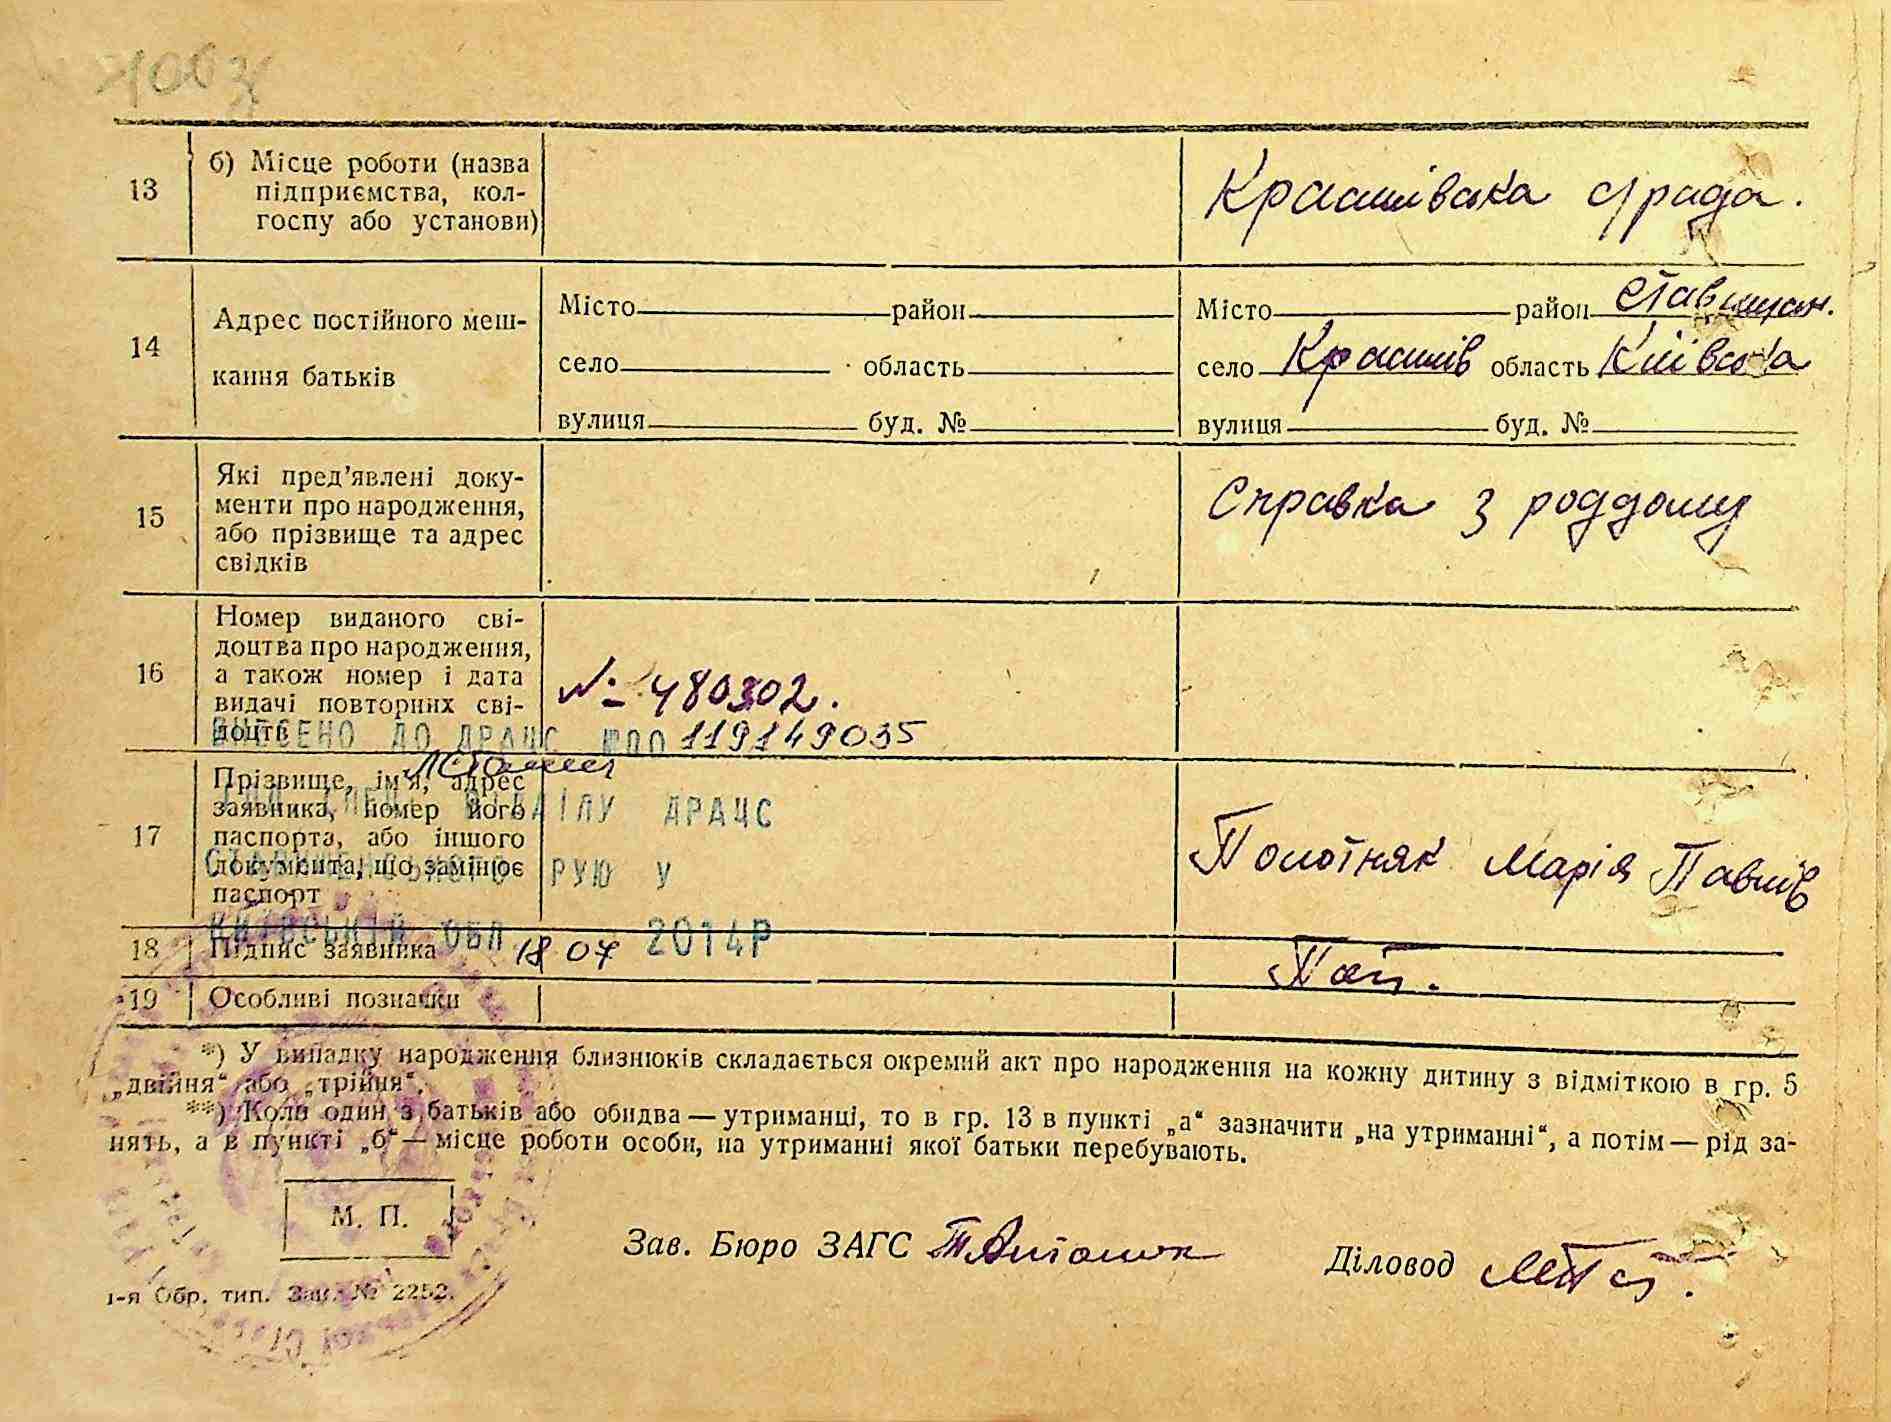 13
б) Місце роботи (назва
підприємства, кол-
госпу або установи)
Крашівська с/рада.
14
Адрес постійного меш-
кання батьків
Місто район
село область
вулиця буд. №
Місто район Ставищан.
село Крашів область Київська
вулиця буд. №
15
Які пред’явлені доку-
менти про народження,
або прізвище та адрес
свідків
Справка з роддому
16
Номер виданого сві-
доцтва про народження,
а також номер і дата
видачі повторних сві-
доцтв
№ 480302.
ВНЕСЕНО ДО ДРАЦС 119149035
17
Прізвище, ім’я, адрес
заявника, номер його
паспорта, або іншого
документа, що замінює
паспорт
ВІДДІЛУ ДРАЦС
СТАВИЩЕНСЬКОГО РУЮ У
КИЇВСЬКІЙ ОБЛ. 18 07 2014Р
Полотняк Марія Павлів
18
Підпис заявника
19
Особливі позначки
*) У випадку народження близнюків складається окремий акт про народження на кожну дитину з відміткою в гр. 5
„двійня“ або „трійня“.
**) Коли один з батьків або обидва — утриманці, то в гр. 13 в пункті „а“ зазначити „на утриманні“, а потім — рід за-
нять, а в пункті „б“ — місце роботи особи, на утриманні якої батьки перебувають.
М. П.
Зав. Бюро ЗАГС
Діловод
1-я Обр. тип. Зак. № 2252.